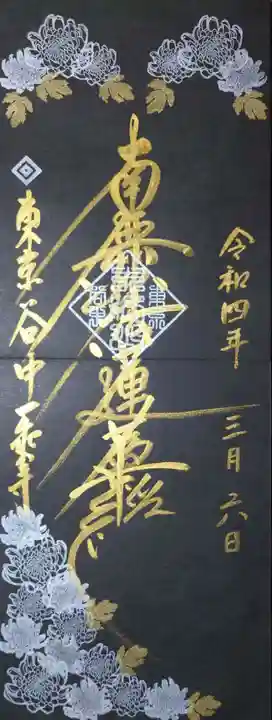 令和四年 三月六日
南無妙法蓮華経
東京谷中一乗寺